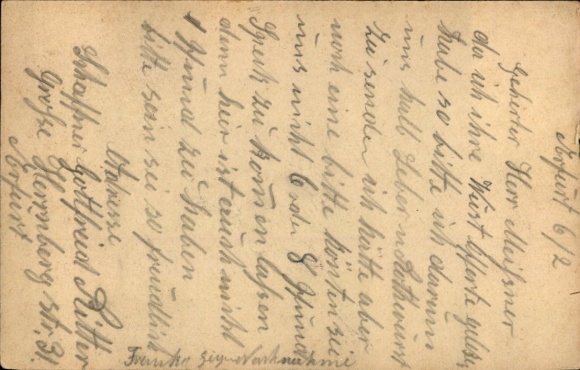 Erfurt 6/2
Gehrter Herr Meißner
da ich ihre Wust Oferte
habe so bitte ich darum
uns halb Leber u Rothwurst
zu senden ich hätte aber
noch eine bitte könten sie
uns nicht 6 oder 8 Pfund
Speck zu komen laßen
denn hier ist auch nicht
1 Pfund zu haben
bitte sein sie so freudlich
Adresse
Schaffner Gottfried Ritter
Große Herrnberg str. 3.
Erfurt
Franko gegen Nachnahme